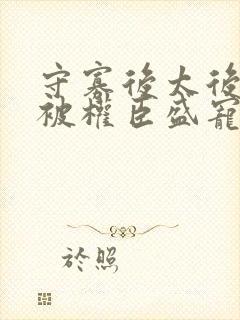 守寡後太後
被權臣盛寵
於照